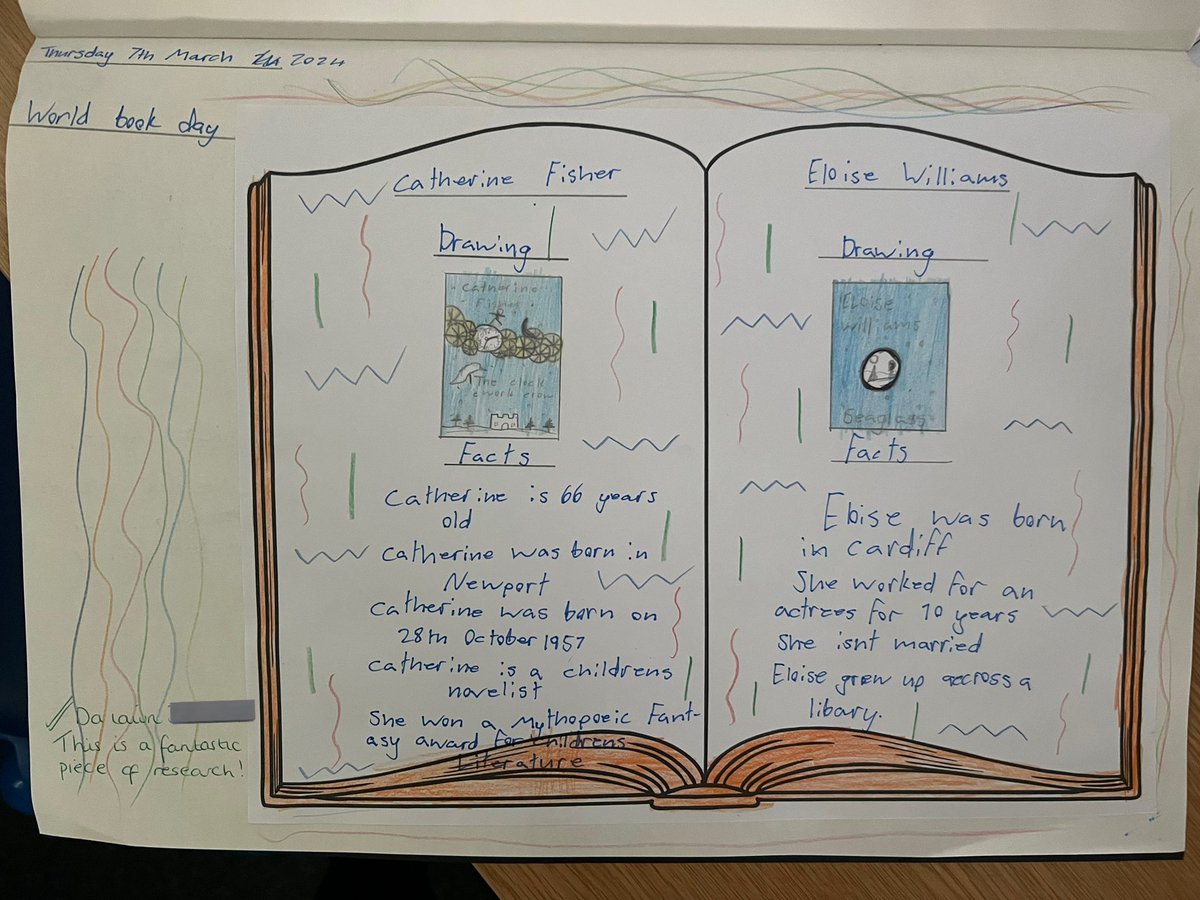 Thursday 7th March 2024
World book day
Catherine Fisher
Drawing
Catherine
Fisher
The clock
work crow
Facts
Catherine is 66 years
old
Catherine was born in
Newport
Catherine was born on
28th October 1957
Catherine is a childrens
novelist
She won a Mythopoeic Fant-
asy award for childrens
Literature
Eloise Williams
Drawing
Eloise
Williams
Seaglass
Facts
Eloise was born
in Cardiff
She worked for an
actrees for 10 years
She isnt married
Eloise grew up accross a
libary.
Da iawn
This is a fantastic
piece of research!